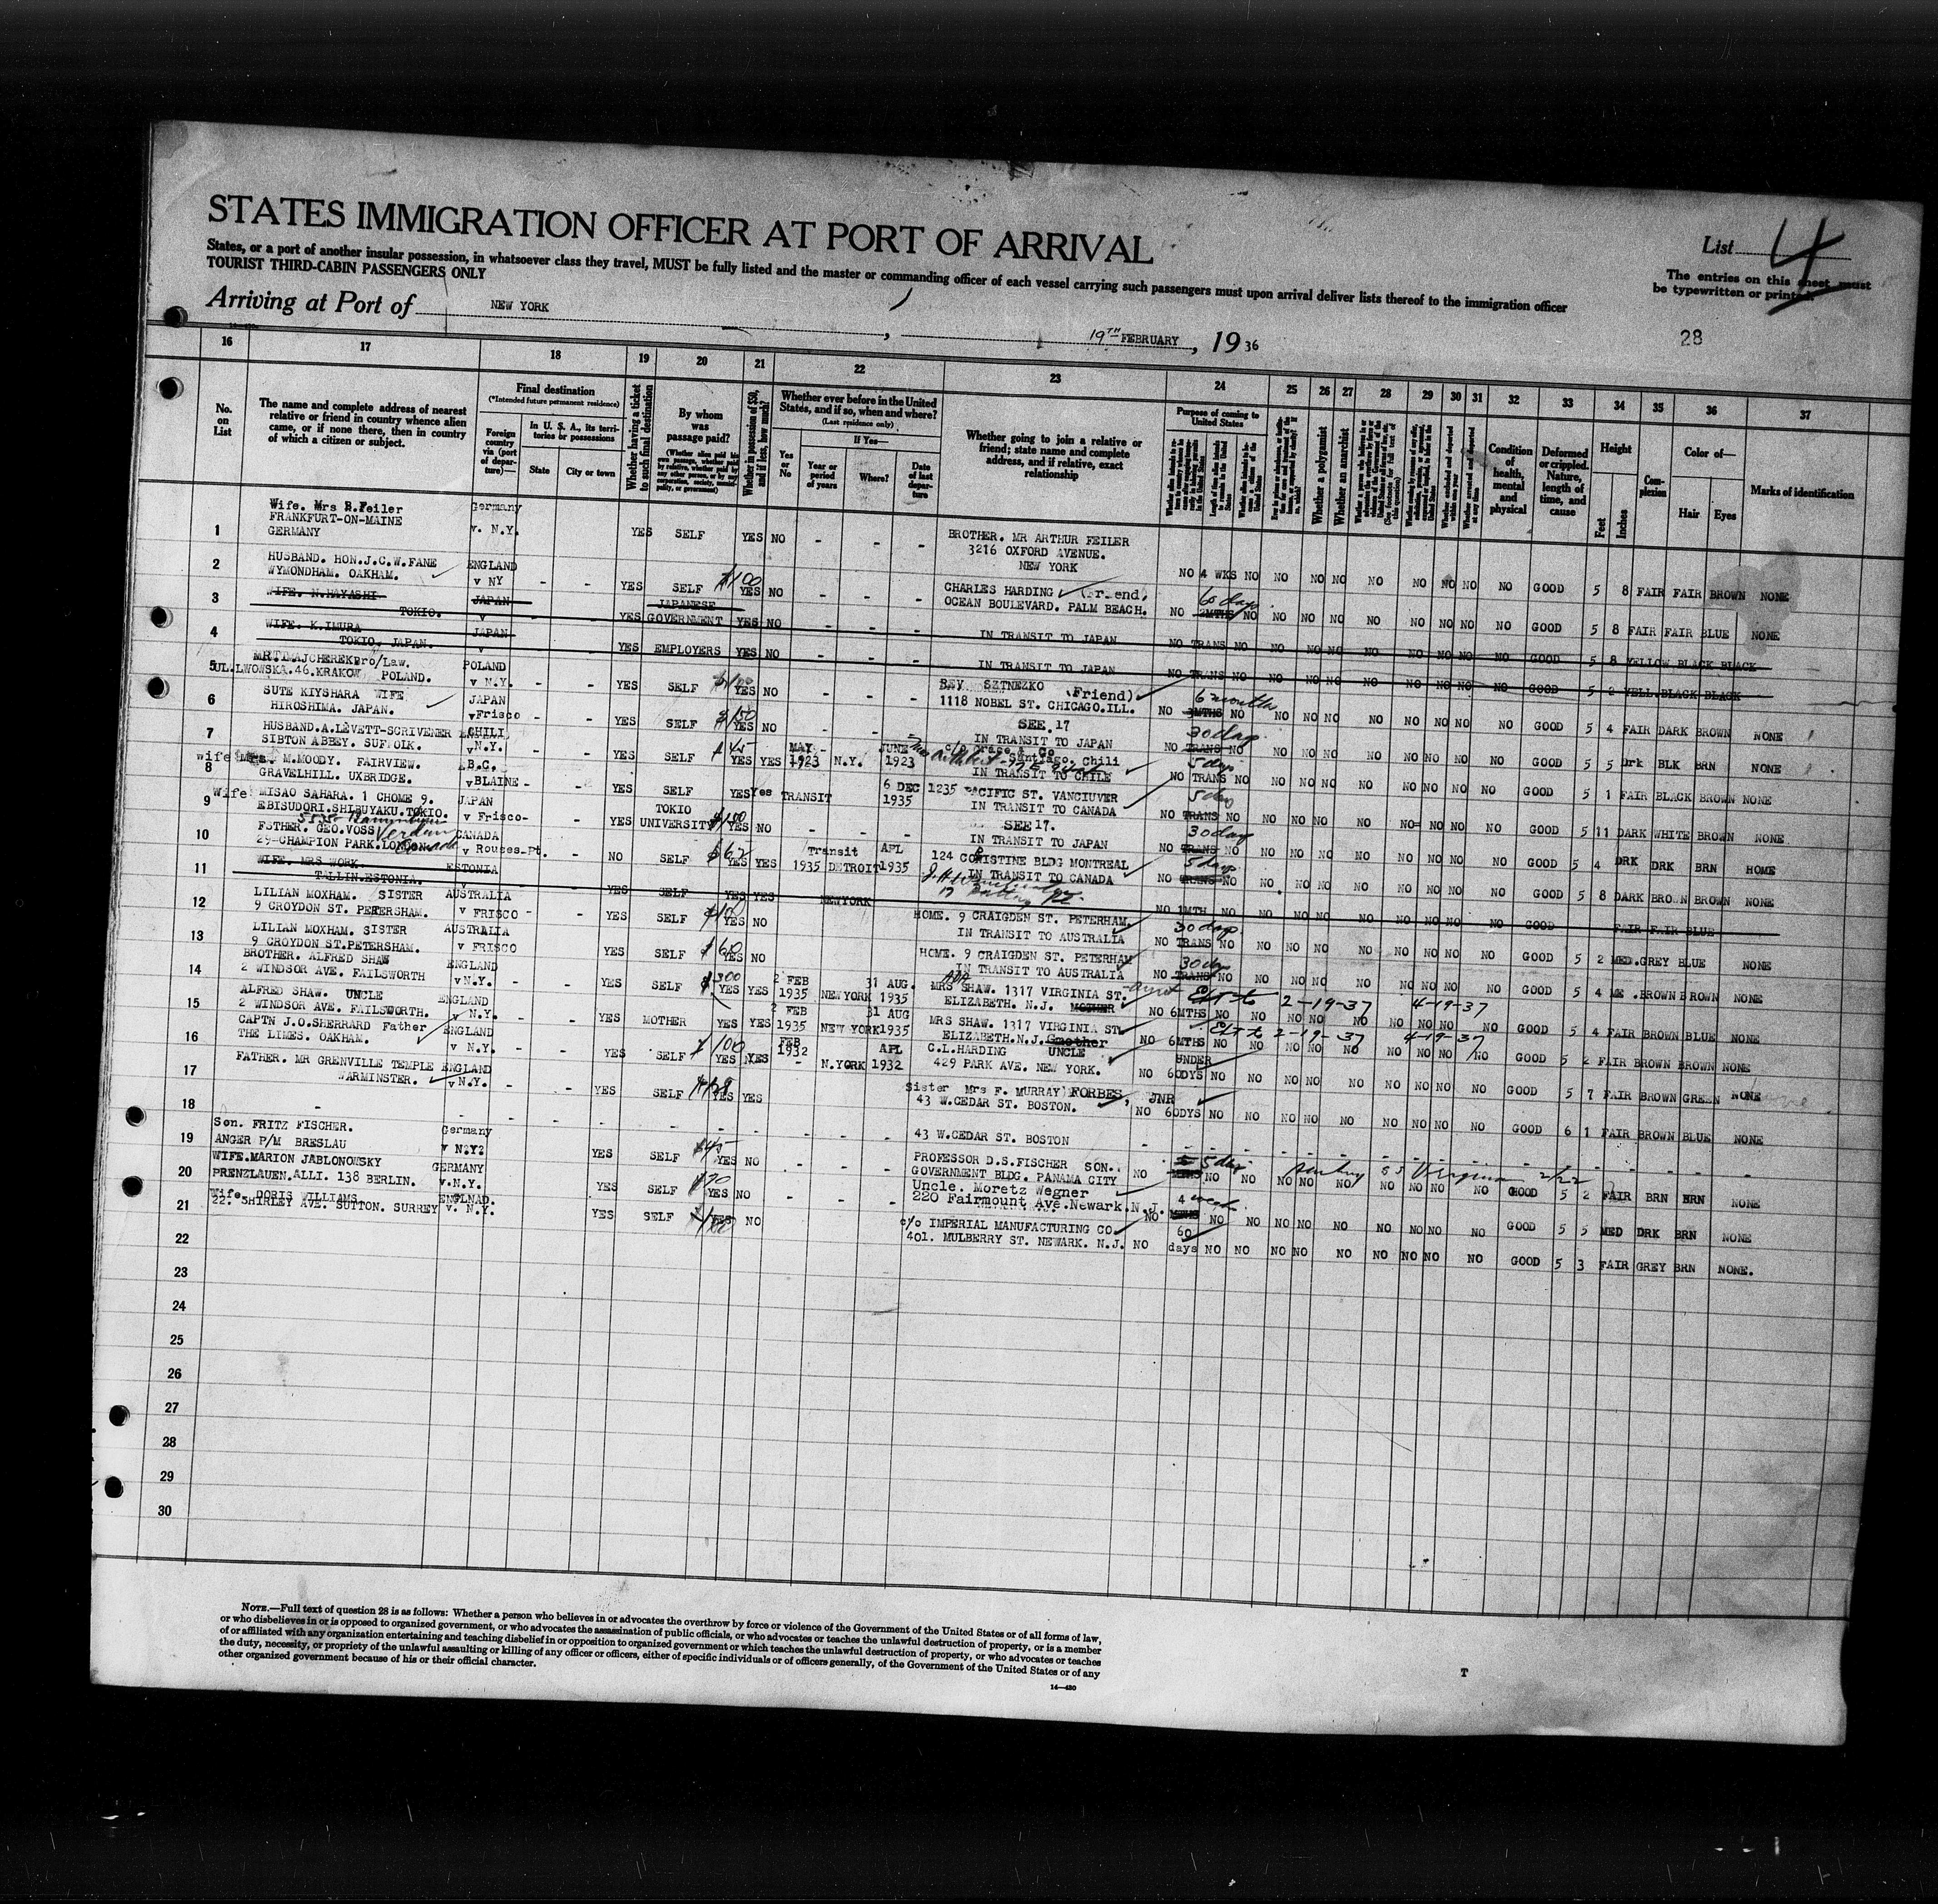 STATES IMMIGRATION OFFICER AT PORT OF ARRIVAL
List 4
States, or a port of another insular possession, in whatsoever class they travel, MUST be fully listed and the master or commanding officer of each vessel carrying such passengers must upon arrival deliver lists thereof to the immigration officer
TOURIST THIRD-CABIN PASSENGERS ONLY
The entries on this sheet must
be typewritten or printed
Arriving at Port of NEW YORK, 19TH FEBRUARY, 1936
28
16 17 18 19 20 21 22 23 24 25 26 27 28 29 30 31 32 33 34 35 36 37
No. on List
The name and complete address of nearest relative or friend in country whence alien came, or if none there, then in country of which a citizen or subject.
Final destination
(*Intended future permanent residence)
Foreign country via (port of departure)—
In U. S. A., its territories or possessions
State
City or town
Whether having a ticket to such final destination
By whom was passage paid?
Whether in possession of $50, and if less, how much?
Whether ever before in the United States, and if so, when and where?
(Last residence only)
If Yes—
Yes or No
Year or period of years
Where?
Date of last departure
Whether going to join a relative or friend; state name and complete address, and if relative, exact relationship
Purpose of coming to United States
Whether a polygamist
Whether an anarchist
Condition of health, mental and physical
Deformed or crippled. Nature, length of time, and cause
Height
Feet
Inches
Complexion
Color of—
Hair
Eyes
Marks of identification
1 Wife. Mrs R.Feiler FRANKFURT-ON-MAINE GERMANY Germany v. N.Y. YES SELF YES NO - - - BROTHER. MR ARTHUR FEILER 3216 OXFORD AVENUE. NEW YORK NO 4 WKS NO NO NO NO NO NO NO NO NO GOOD 5 8 FAIR FAIR BROWN NONE
2 HUSBAND. HON.J.C.W.FANE WYMONDHAM. OAKHAM. ENGLAND v NY - - YES SELF $100 YES NO - - - CHARLES HARDING (Friend) OCEAN BOULEVARD. PALM BEACH. NO 60 days 2MTHS NO NO NO NO NO NO NO NO NO GOOD 5 8 FAIR FAIR BLUE NONE
3 WIFE. N.HAYASHI TOKIO. JAPAN v YES JAPANESE GOVERNMENT YES NO - - - IN TRANSIT TO JAPAN NO TRANS NO NO NO NO NO NO NO NO NO GOOD 5 8 YELLOW BLACK BLACK
4 WIFE. K.IMURA TOKIO. JAPAN. JAPAN v YES EMPLOYERS YES NO - - - IN TRANSIT TO JAPAN NO TRANS NO NO NO NO NO NO NO NO NO GOOD 5 2 YELL.BLACK BLACK
5 Bro/Law. UL.LWOWSKA.46.KRAKOW POLAND. POLAND v N.Y. - - YES SELF YES NO - - - (Friend) 1118 NOBEL ST. CHICAGO.ILL. NO 6 months 3MTHS NO NO NO NO NO NO NO NO NO GOOD 5 4 FAIR DARK BROWN NONE
6 SUTE KIYSHARA WIFE HIROSHIMA. JAPAN. JAPAN vFrisco - - YES SELF $150 YES NO - - - SEE.17 IN TRANSIT TO JAPAN NO 30 days TRANS NO NO NO NO NO NO NO NO NO GOOD 5 5 Drk BLK BRN NONE
7 HUSBAND.A.LEVETT-SCRIVENER SIBTON ABBEY. SUFFOLK. CHILI vN.Y. - - YES SELF $45 YES YES MAY 1923 N.Y. JUNE 1923 c/o Grace & Co Santiago. Chili IN TRANSIT TO CHILE NO 5 days TRANS NO NO NO NO NO NO NO NO NO GOOD 5 1 FAIR BLACK BROWN NONE
8 wife Mrs. M.MOODY. FAIRVIEW. GRAVELHILL. UXBRIDGE. B.C. vBLAINE - - YES SELF YES Yes TRANSIT 6 DEC 1935 1235 PACIFIC ST. VANCIUVER IN TRANSIT TO CANADA NO 5 days TRANS NO NO NO NO NO NO NO NO NO GOOD 5 11 DARK WHITE BROWN NONE
9 Wife MISAO SAHARA. 1 CHOME 9. EBISUDORI.SHIBUYAKU.TOKIO. JAPAN v Frisco- - YES TOKIO UNIVERSITY $150 YES NO - - - SEE 17. IN TRANSIT TO JAPAN NO 30 days TRANS NO NO NO NO NO NO NO NO NO GOOD 5 4 DRK DRK BRN HOME
10 FATHER. GEO.VOSS Verdun Canada 29-CHAMPION PARK.LONDON. CANADA v Rouses-Pt. NO SELF $62 YES YES Transit 1935 DETROIT APL 1935 124 CORISTINE BLDG MONTREAL IN TRANSIT TO CANADA NO 5 days TRANS NO NO NO NO NO NO NO NO NO GOOD 5 8 DARK BROWN BROWN NONE
11 WIFE. MRS WORK. TALLIN.ESTONIA. ESTONIA YES SELF YES YES NEWYORK NO 1MTH NO NO NO NO NO NO NO NO NO GOOD FAIR FAIR BLUE
12 LILIAN MOXHAM. SISTER 9 CROYDON ST. PETERSHAM. AUSTRALIA v FRISCO - - YES SELF YES NO HOME. 9 CRAIGDEN ST. PETERHAM. IN TRANSIT TO AUSTRALIA NO 30 days TRANS NO NO NO NO NO NO NO NO NO GOOD 5 2 MED.GREY BLUE NONE
13 LILIAN MOXHAM. SISTER 9 CROYDON ST.PETERSHAM. AUSTRALIA v FRISCO - - YES SELF $60 YES NO HOME. 9 CRAIGDEN ST. PETERHAM IN TRANSIT TO AUSTRALIA NO 30 days TRANS NO NO NO NO NO NO NO NO NO GOOD 5 4 ME.BROWN BROWN NONE
14 BROTHER. ALFRED SHAW 2 WINDSOR AVE. FAILSWORTH ENGLAND vN.Y. - - YES SELF $300 YES YES 2 FEB 1935 NEWYORK 31 AUG. 1935 MRS SHAW. 1317 VIRGINIA ST. ELIZABETH. N.J. MOTHER NO 6MTHS NO Ext to 2-19-37 4-19-37 NO NO NO NO NO NO NO NO GOOD 5 4 FAIR BROWN BLUE NONE
15 ALFRED SHAW. UNCLE 2 WINDSOR AVE. FAILSWORTH. ENGLAND v N.Y. - - YES MOTHER YES YES 2 FEB 1935 NEW YORK 31 AUG 1935 MRS SHAW. 1317 VIRGINIA ST ELIZABETH.N.J. Gmother NO 6MTHS NO Ext to 2-19-37 4-19-37 NO NO NO NO NO NO NO NO GOOD 5 2 FAIR BROWN BROWN NONE
16 CAPTN J.O.SHERRARD Father THE LIMES. OAKHAM. ENGLAND v N.Y. - - YES SELF $100 YES YES FEB 1932 N.YORK APL 1932 C.L.HARDING UNCLE 429 PARK AVE. NEW YORK. NO UNDER 60DYS NO NO NO NO NO NO NO NO NO GOOD 5 7 FAIR BROWN GREEN NONE
17 FATHER. MR GRENVILLE TEMPLE WARMINSTER. ENGLAND vN.Y. - - YES SELF YES YES Sister Mrs F. MURRAY FORBES, JNR 43 W.CEDAR ST. BOSTON. NO 60DYS NO NO NO NO NO NO NO NO NO GOOD 6 1 FAIR BROWN BLUE NONE
18 - - - - - - - - - - - 43 W.CEDAR ST. BOSTON - - - - - -
19 Son. FRITZ FISCHER. ANGER P/M BRESLAU Germany v N.Y. YES SELF $45 YES NO - - - PROFESSOR D.S.FISCHER SON. GOVERNMENT BLDG. PANAMA CITY 5 days NO NO NO NO NO NO NO NO NO GOOD 5 2 FAIR BRN BRN NONE
20 WIFE.MARION JABLONOWSKY PRENZLAUEN.ALLI. 138 BERLIN. GERMANY v.N.Y. YES SELF YES NO - - - Uncle. Moretz Wegner 220 Fairmount Ave.Newark.N.J. NO 4 weeks MTHS NO NO NO NO NO NO NO NO NO GOOD 5 5 MED DRK BRN NONE
21 Wife. DORIS WILLIAMS. 22. SHIRLEY AVE. SUTTON. SURREY ENGLNAD. v. N.Y. YES SELF YES NO c/o IMPERIAL MANUFACTURING CO 401. MULBERRY ST. NEWARK. N.J. NO 60 days NO NO NO NO NO NO NO NO NO GOOD 5 3 FAIR GREY BRN NONE.
22
23
24
25
26
27
28
29
30
NOTE.—Full text of question 28 is as follows: Whether a person who believes in or advocates the overthrow by force or violence of the Government of the United States or of all forms of law,
or who disbelieves in or is opposed to organized government, or who advocates the assassination of public officials, or who advocates or teaches the unlawful destruction of property, or is a member
of or affiliated with any organization entertaining and teaching disbelief in or opposition to organized government or which teaches the unlawful destruction of property, or who advocates or teaches
the duty, necessity, or propriety of the unlawful assaulting or killing of any officer or officers, either of specific individuals or of officers generally, of the Government of the United States or of any
other organized government because of his or their official character.
14—430
T